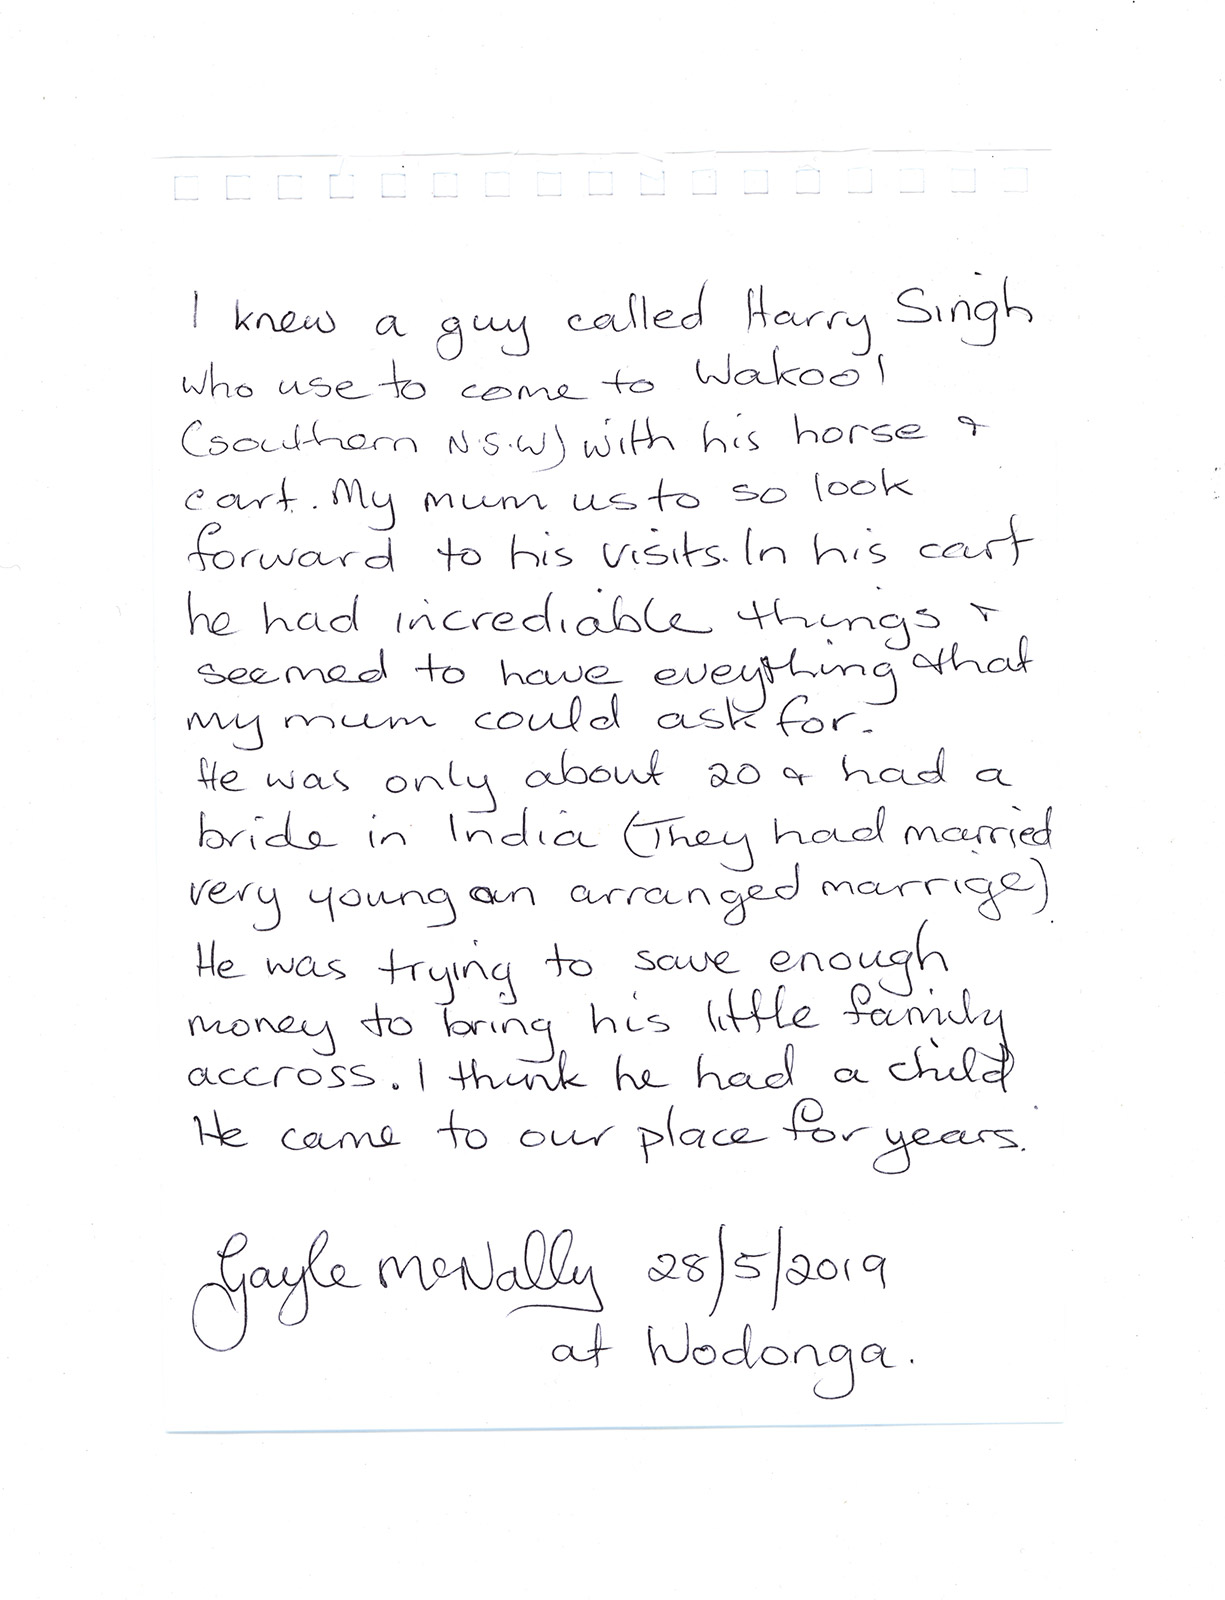 I knew a guy called Harry Singh
who use to come to Wakool
(southern N.S.W) with his horse &
cart. My mum us to so look
forward to his visits. In his cart
he had incrediable things &
seemed to have eveything that
my mum could ask for.
He was only about 20 & had a
bride in India (They had married
very young an arranged marrige)
He was trying to save enough
money to bring his little family
accross. I think he had a child
He came to our place for years.
Gayle McNally 28/5/2019
at Wodonga.